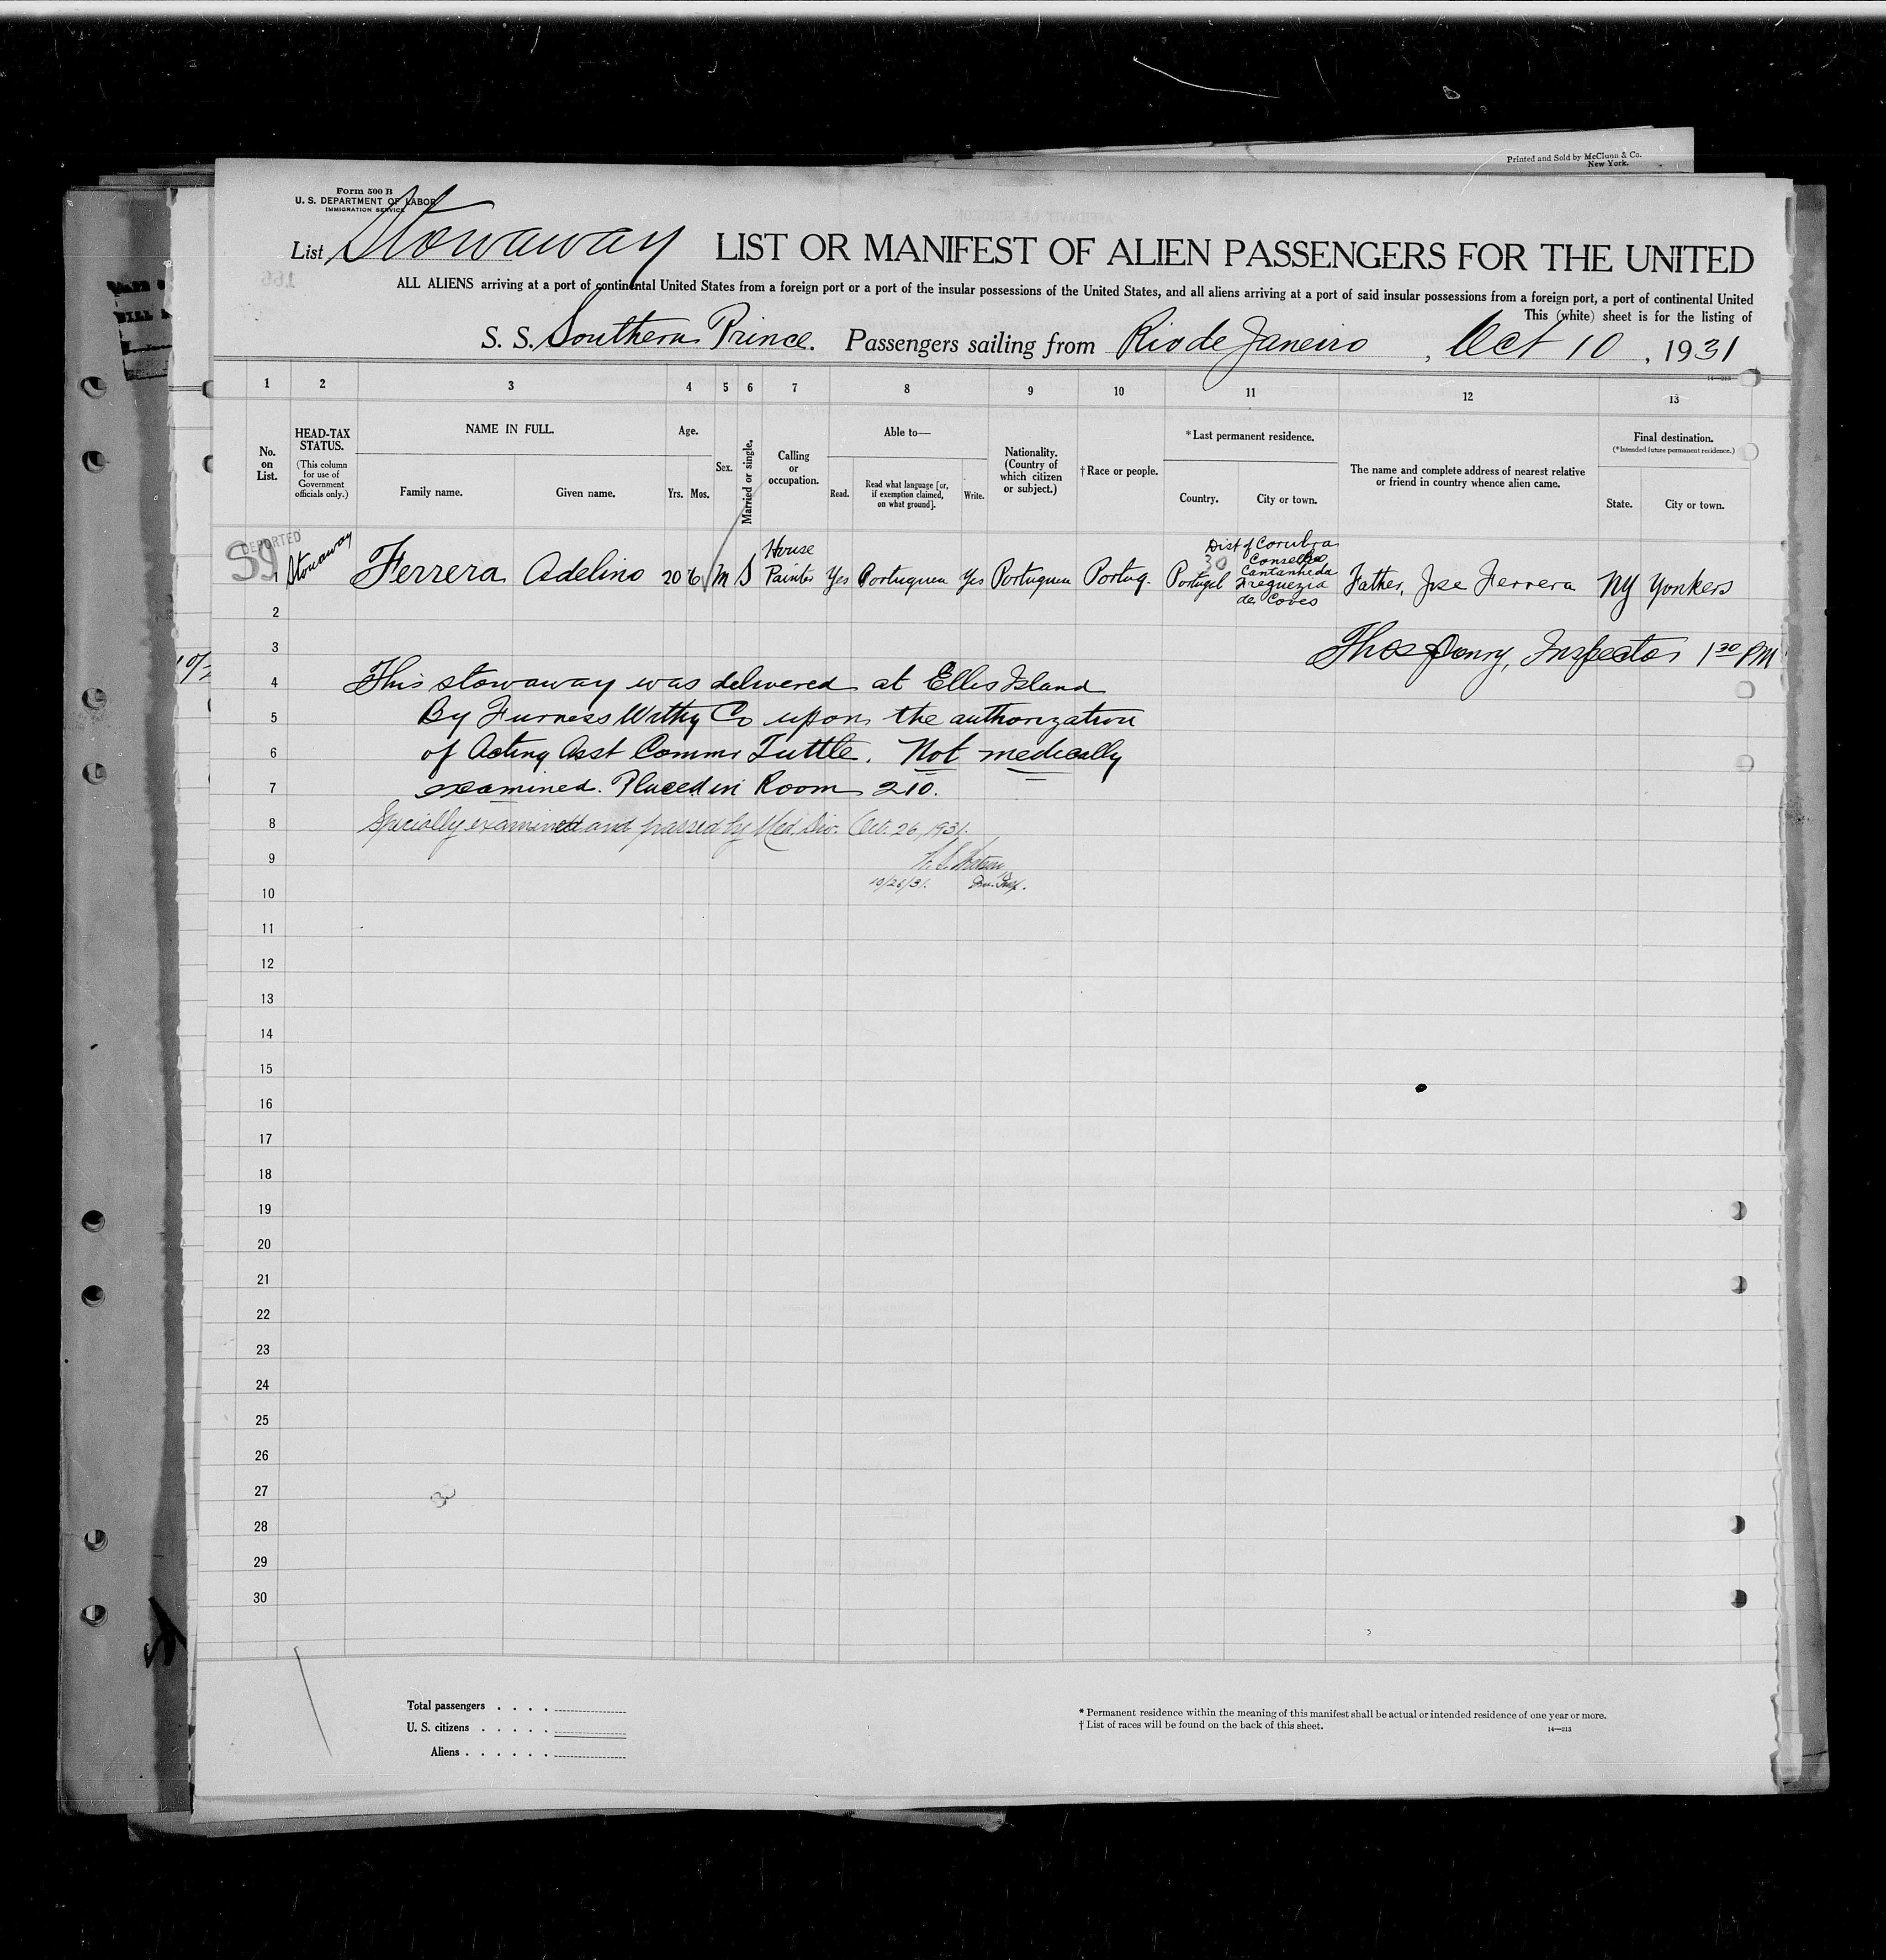 Printed and Sold by McClunn & Co.
New York.
Form 500 B
U. S. DEPARTMENT OF LABOR
IMMIGRATION SERVICE
List Stowaway LIST OR MANIFEST OF ALIEN PASSENGERS FOR THE UNITED
166
ALL ALIENS arriving at a port of continental United States from a foreign port or a port of the insular possessions of the United States, and all aliens arriving at a port of said insular possessions from a foreign port, a port of continental United
This (white) sheet is for the listing of
S. S. Southern Prince. Passengers sailing from Rio de Janeiro, Oct 10, 1931
14—213
1 2 3 4 5 6 7 8 9 10 11 12 13
No. on List.
HEAD-TAX STATUS.
(This column for use of Government officials only.)
NAME IN FULL.
Family name. Given name.
Age.
Yrs. Mos.
Sex.
Married or single.
Calling or occupation.
Able to—
Read. Read what language [or, if exemption claimed, on what ground]. Write.
Nationality. (Country of which citizen or subject.)
†Race or people.
*Last permanent residence.
Country. City or town.
The name and complete address of nearest relative or friend in country whence alien came.
Final destination.
(*Intended future permanent residence.)
State. City or town.
DEPORTED
1 Stowaway Ferrera Adelino 20 6 m S House Painter Yes Portuguese Yes Portuguese Portug. Portugal 30 Dist of Corubra Conselho Cantanheda Freguezia de Coves Father, Jose Ferrera NY Yonkers
2
3 Inspector 1 30 PM
4 This stowaway was delivered at Ellis Island
5 By Furness Withy Co upon the authorization
6 of Acting Asst Commr Tuttle. Not medically
7 examined. Placed in Room 210.
8 Specially examined and passed by Med. Div. Oct. 26, 1931.
9
10/26/31. Imm. Insp.
10
11
12
13
14
15
16
17
18
19
20
21
22
23
24
25
26
27
28
29
30
Total passengers . . . .
U. S. citizens . . . . .
Aliens . . . . . .
* Permanent residence within the meaning of this manifest shall be actual or intended residence of one year or more.
† List of races will be found on the back of this sheet.
14—213